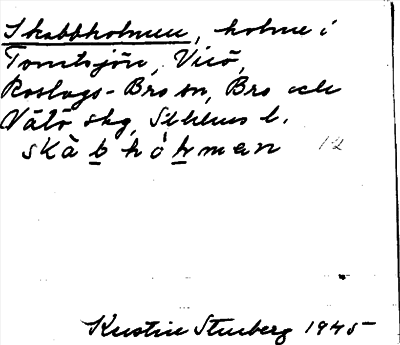 Skabbholmen, holme i
Tomtsjön, Vicö,
Roslags-Bro sn, Bro och
Vätö skg, Sthlms l.
skàb hòhmen 12
Kerstin Stenberg 1945